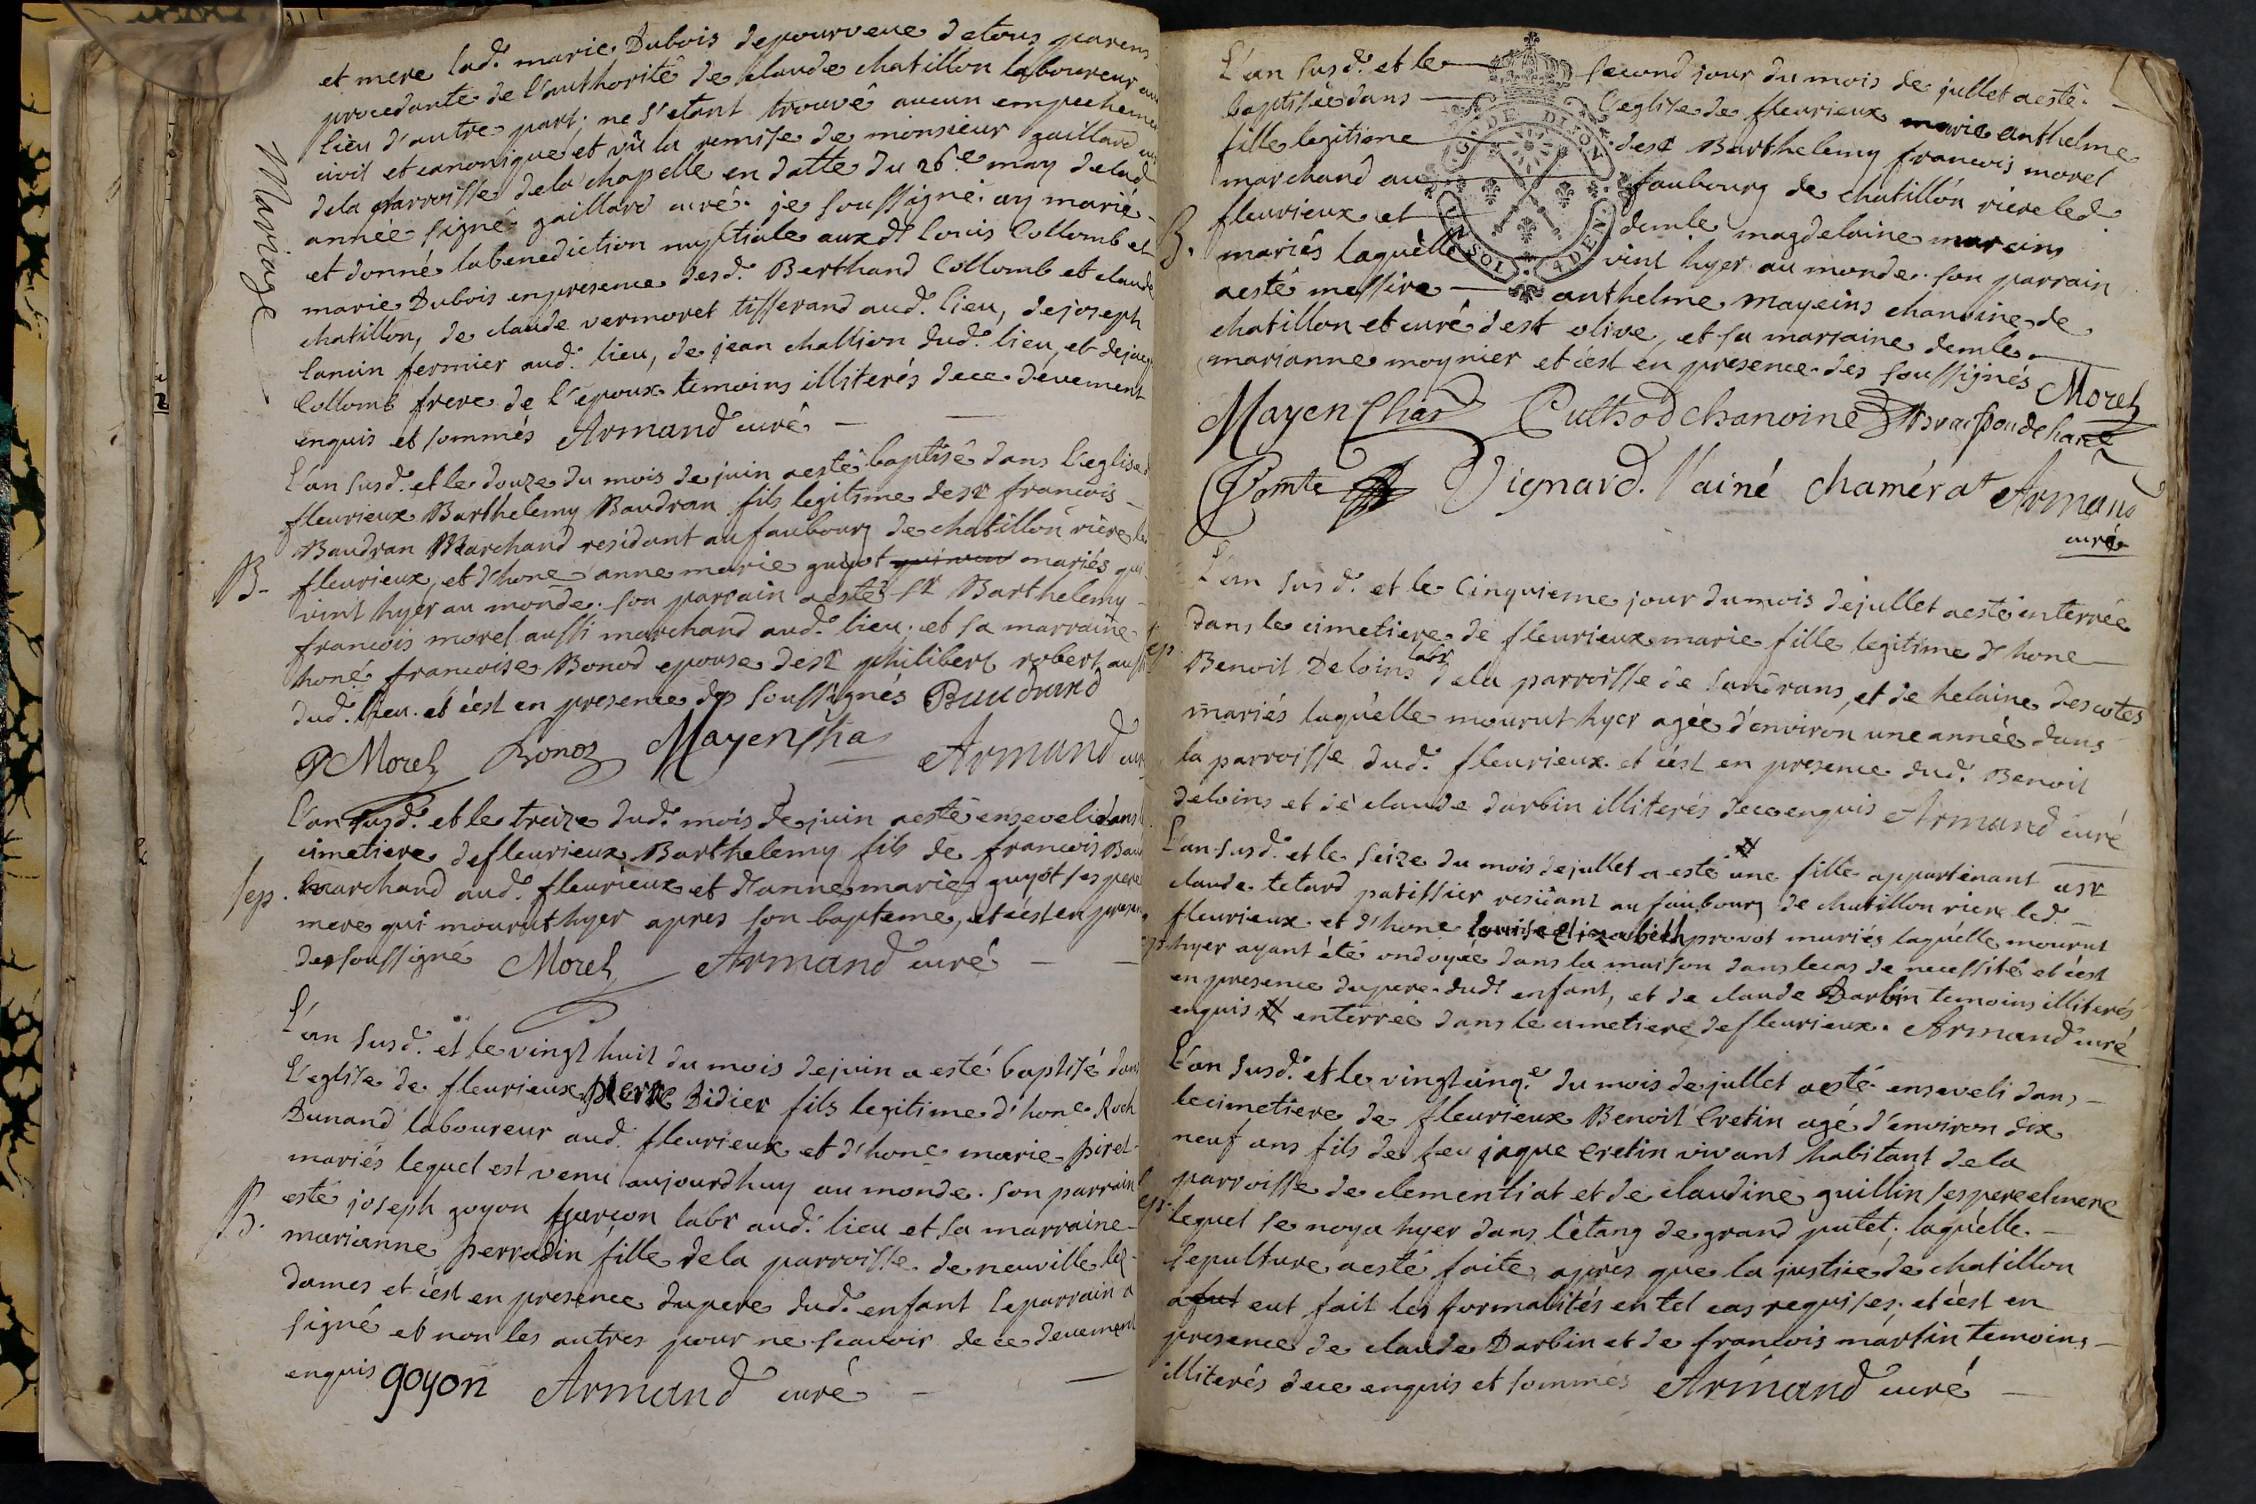 et mere lad.e marie Dubois depourveue de tous parens
procedante de l'authorité de claude chatillon laboureur
lieu d'autre part, ne s'etant trouvé aucun empecheme
civil et canonique et vû la remise de monsieur gaillard
Mariage
dela parroisse dela chapelle en datte du 26.e may delad
année signé gaillard curé. je soussigné ay marié
et donné la benediction nuptiale auxd.t louis Collomb et
marie Dubois en presence desd. Berthand Collomb et claude
chatillon, de claude vermoret tisserand aud. lieu, de joseph
lanvin fermier aud. lieu, de jean challion dud. lieu, et de
Collomb frere de l'epoux temoins illiterés de ce devement
enquis et sommés Armand curé
L'an susd. et le douze du mois de juin aesté baptisé dans l'eglise
fleurieux Barthelemy Baudran fils legitime de sr francois
Baudran Marchand residant au faubourg de chatillon riere
B.
fleurieux, et d'hone anne marie guyot mariés qui
vint hyer au monde. son parrain aesté sr Barthelemy
francois morel aussi marchand aud. lieu, et sa marraine
honé. francoise Bonod epouse de sr philibert robert aussi
dud. lieu. et c'est en presence des soussignés Baudrand
P Morel Bonod Mayen Cha Armand curé
L'an susd. et le treize dud. mois de juin aesté enseveli dans
cimetiere de fleurieux Barthelemy fils de francois Bau
sep.
marchand aud. fleurieux et d'anne marie guyot ses pere
mere qui mourut hyer apres son bapteme, et c'est en presen
des soussigné Morel Armand curé
L'an susd. et le vingt huit du mois de juin a esté baptisé dans
l'eglise de fleurieux pierre Didier fils legitime d'hone Roch
Dunand laboureur aud. fleurieux et d'hone marie piret
mariés lequel est venu aujourdhuy au monde. son parrain
B.
esté joseph goyon garçon labr aud. lieu et sa marraine
marianne perradin fille dela parroisse de neuville les
dames et c'est en presence dupere dud. enfant le parrain a
signé et non les autres pour ne scavoir de ce devement
enquis goyon Armand curé
L'an susd. et le second jour du mois de jullet aesté
baptisée dans l'eglise de fleurieux marie anthelme
fille legitime de sr Barthelemy francois morel
marchand au faubourg de chatillon riere led.
fleurieux et demle magdelaine mareins
B.
mariés laquelle vint hyer au monde. son parrain
aesté messire anthelme mayeins chanoine de
chatillon et curé d'est olive, et sa marraine demle
marianne moynier et c'est en presence des soussignés Morel
G. DE DIJON
SOL 4 DEN
Mayen Chan Culhod chanoine
Comte Vignard. l'ainé chamérat Armand
curé
L'an susd. et le cinquieme jour du mois de jullet aesté enterrée
dans le cimetiere de fleurieux marie fille legitime d'hone
sep.
Benoit Deloins labr dela parroisse de sandrans, et de helaine descotes
mariés laquelle mourut hyer agée d'environ une année dans
la parroisse dud. fleurieux. et c'est en presence dud. Benoit
deloins et de claude darbin illiterés de ce enquis Armand curé
L'an susd. et le seize du mois de jullet a esté # une fille appartenant a sr
claude tetard patissier residant au faubourg de chatillon riere led.
fleurieux et d'hone louise elizabeth provot mariés laquelle mourut
hyer ayant été ondoyée dans la maison dans le cas de necessité et c'est
en presence dupere dud. enfant, et de claude Darbin temoins illiterés
enquis # enterrée dans le cimetiere de fleurieux. Armand curé
L'an susd. et le vingt cinq.e du mois de jullet aesté enseveli dans
le cimetiere de fleurieux Benoit Cretin agé d'environ dix
neuf ans fils de feu jaque Cretin vivant habitant dela
parroisse de clementiat et de claudine guillin ses pere et mere
sep.
lequel se noya hyer dans l'étang de grand putet. laquelle
sepulture aesté faite après que la justice de chatillon
eut fait les formalités en tel cas requises. et c'est en
presence de claude Darbin et de francois martin temoins
illiterés de ce enquis et sommés Armand curé